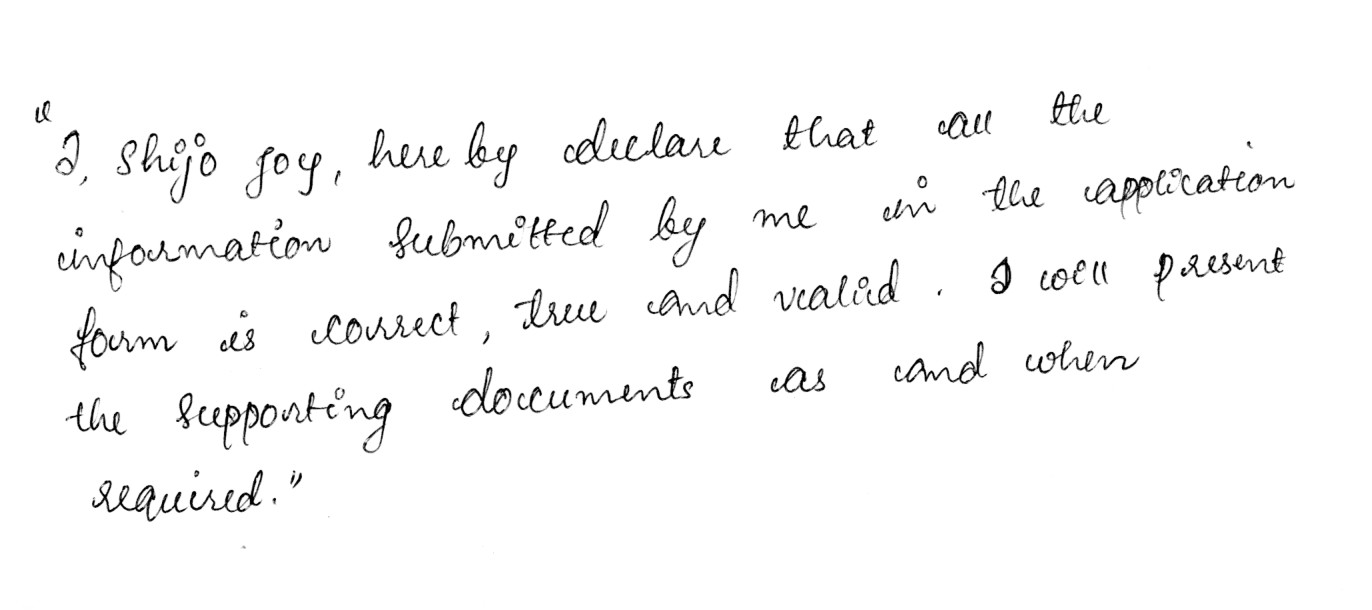 "I, Shijo Joy, here by declare that all the
information submitted by me in the application
form is correct, true and valid. I will present
the supporting documents as and when
required."